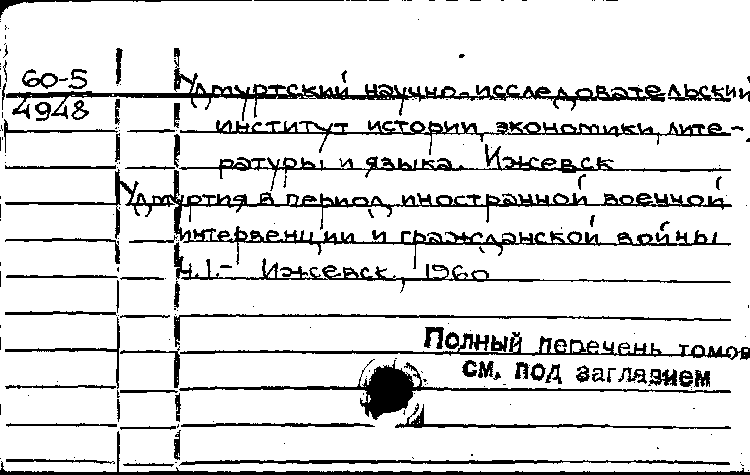 60-5
4948
Удмуртский научно-исследовательский
институт истории, экономики, лите-
ратуры и языка. Ижевск
Удмуртия в период иностранной военной
интервенции и гражданской войны
Ч.1.- Ижевск, 1960
Полный перечень томов
см. под заглавием